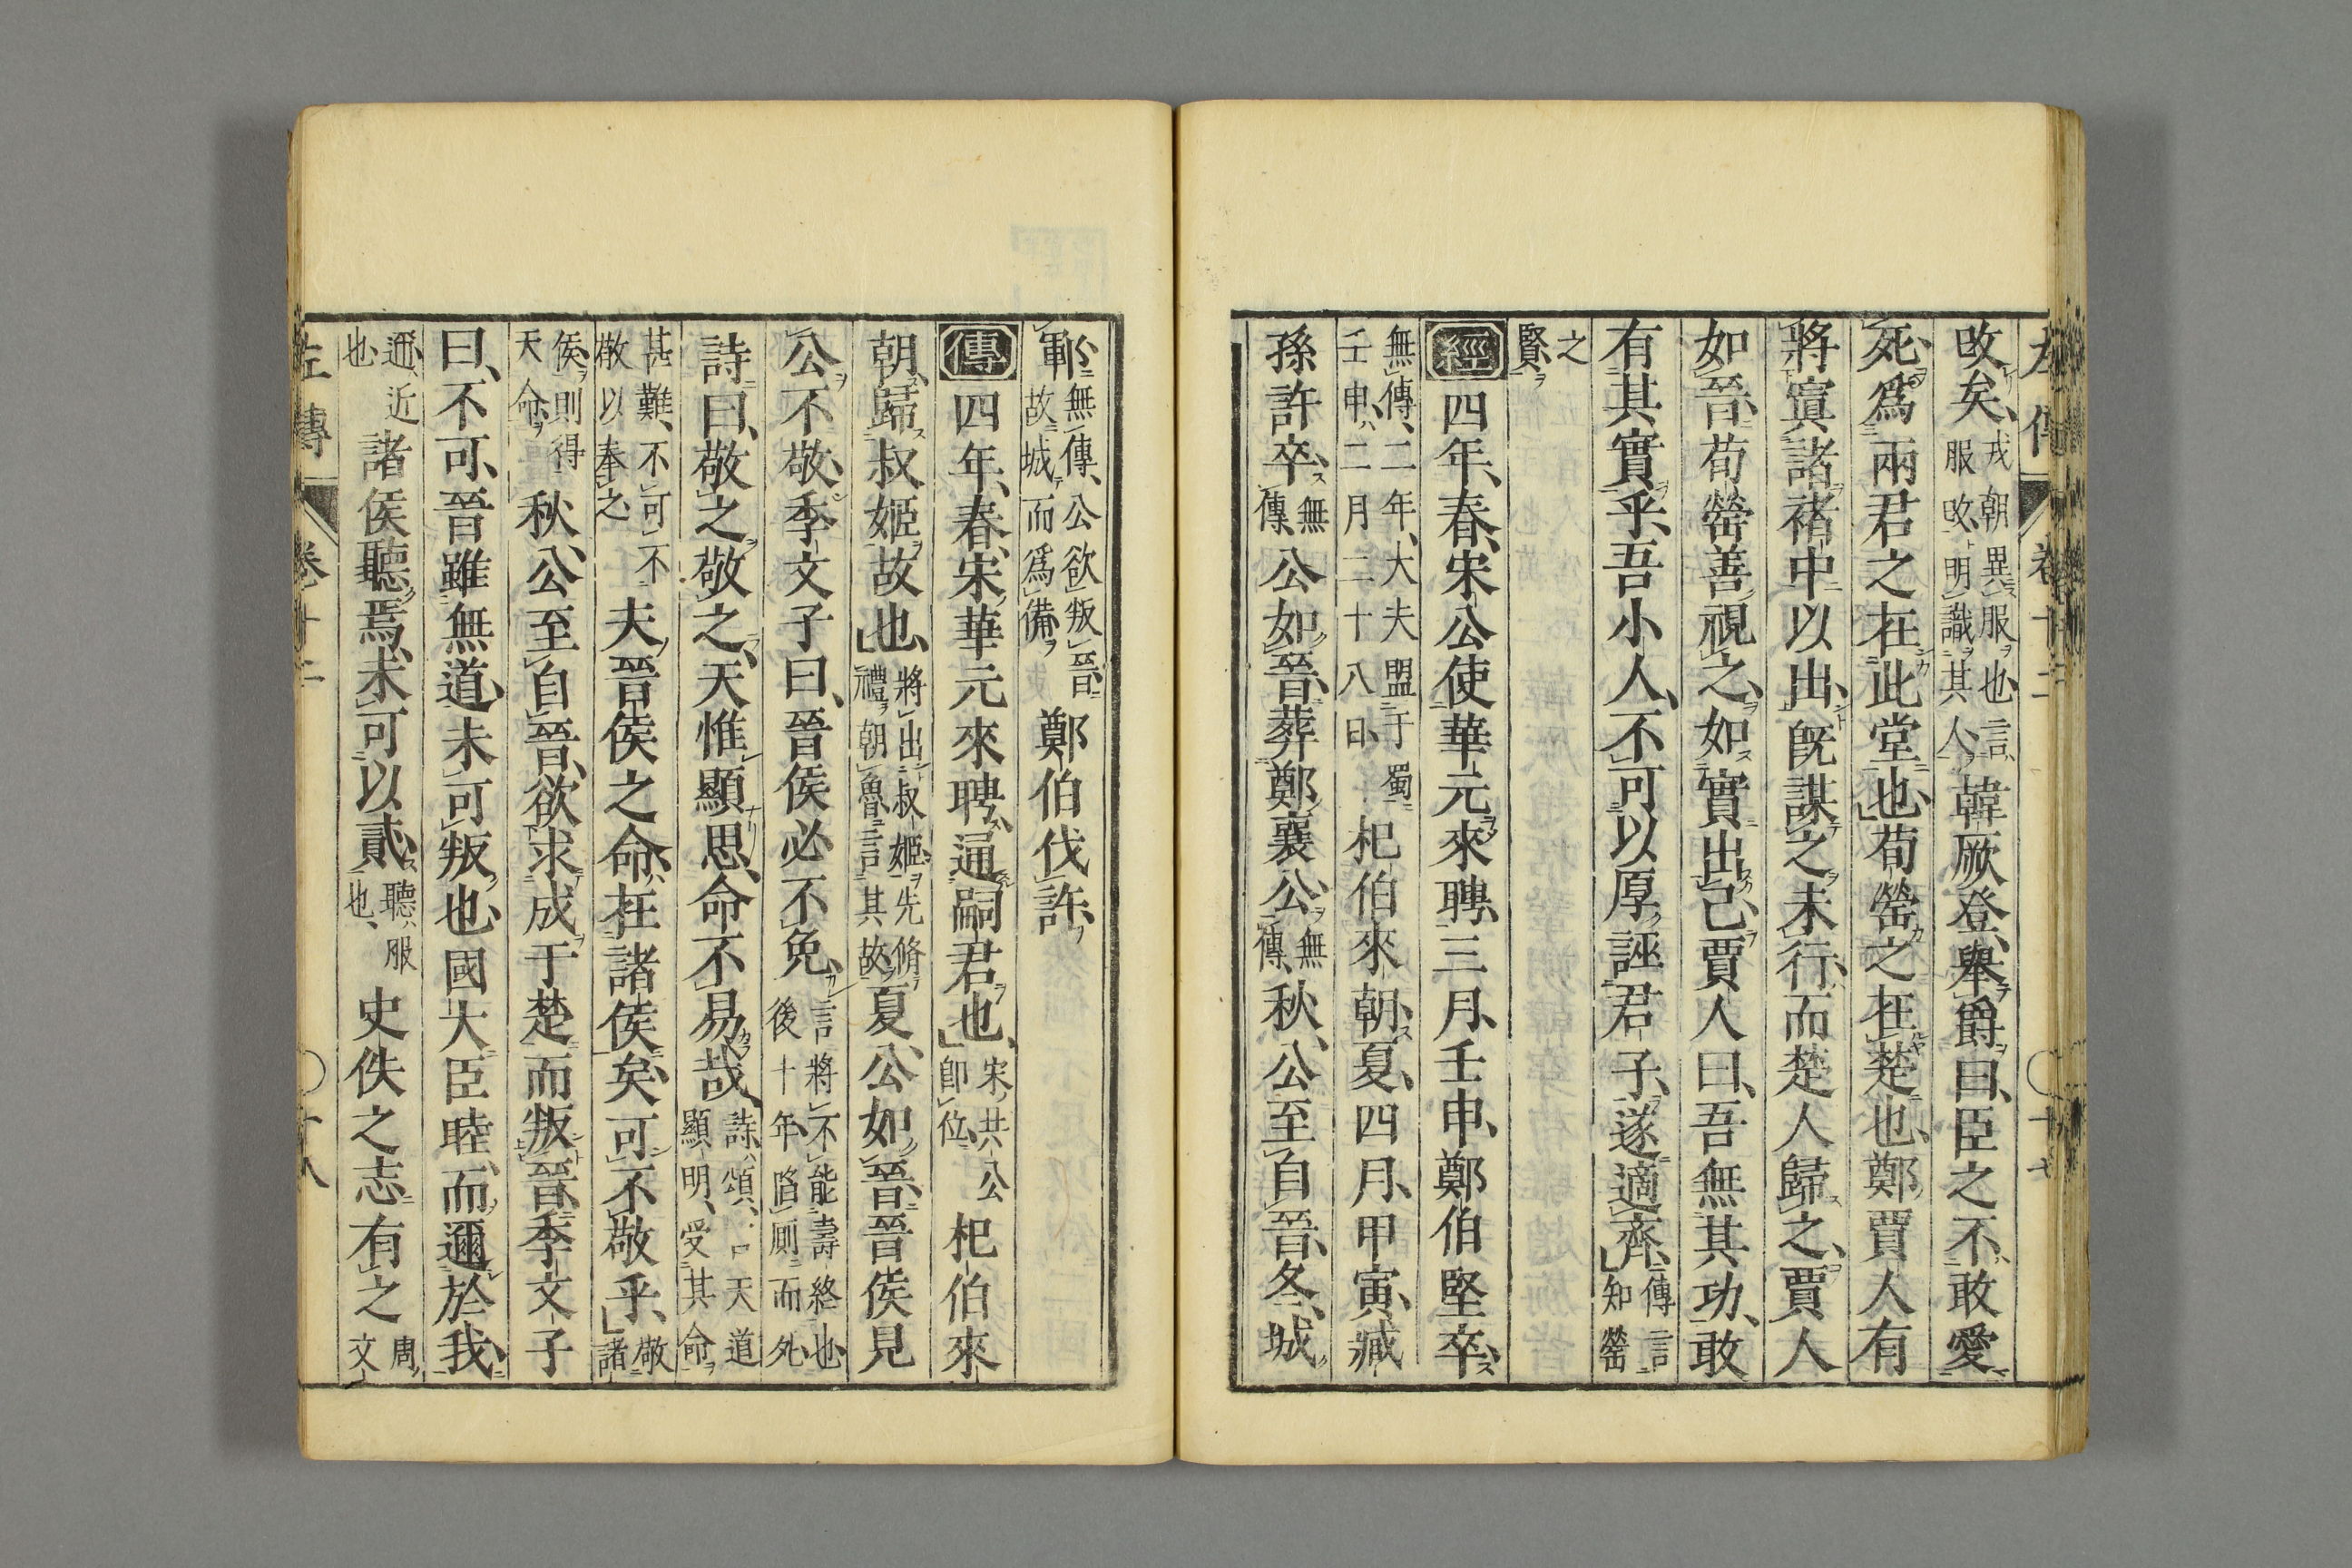 左傳 卷十二 〇十七
攺矣、戎朝異服也、言服攺、明識其人、韓厥登、舉爵曰、臣之不敢愛
死、爲兩君之在此堂也、荀罃之在楚也、鄭賈人有
將寘諸褚中以出、旣謀之、未行、而楚人歸之、賈人
如晉、荀罃善視之、如實出己、賈人曰、吾無其功、敢
有其實乎、吾小人、不可以厚誣君子、遂適齊、傳言知罃
之賢、
經四年、春、宋公使華元來聘、三月、壬申、鄭伯堅卒、
無傳、二年、大夫盟于蜀、壬申、二月二十八日、杞伯來朝、夏、四月、甲寅、臧
孫許卒、無傳、公如晉、葬鄭襄公、無傳、秋、公至自晉、冬、城
鄆、無傳、公欲叛晉、故城而爲備、鄭伯伐許、
傳四年、春、宋華元來聘、通嗣君也、宋共公卽位、杞伯來
朝、歸叔姬故也、將出叔姬、先脩禮朝魯、言其故、夏、公如晉、晉侯見
公、不敬、季文子曰、晉侯必不免、言將不能壽終也、後十年、陷厠而死、
詩曰、敬之敬之、天惟顯思、命不易哉、詩頌、言天道顯明、受其命
甚難、不可不敬以奉之、夫晉侯之命、在諸侯矣、可不敬乎、敬諸
侯、則得天命、秋、公至自晉、欲求成于楚、而叛晉、季文子
曰、不可、晉雖無道、未可叛也、國大臣睦、而邇於我、
邇、近也、諸侯聽焉、未可以貳、聽、服也、史佚之志有之、周文
左傳 卷十二 〇十八